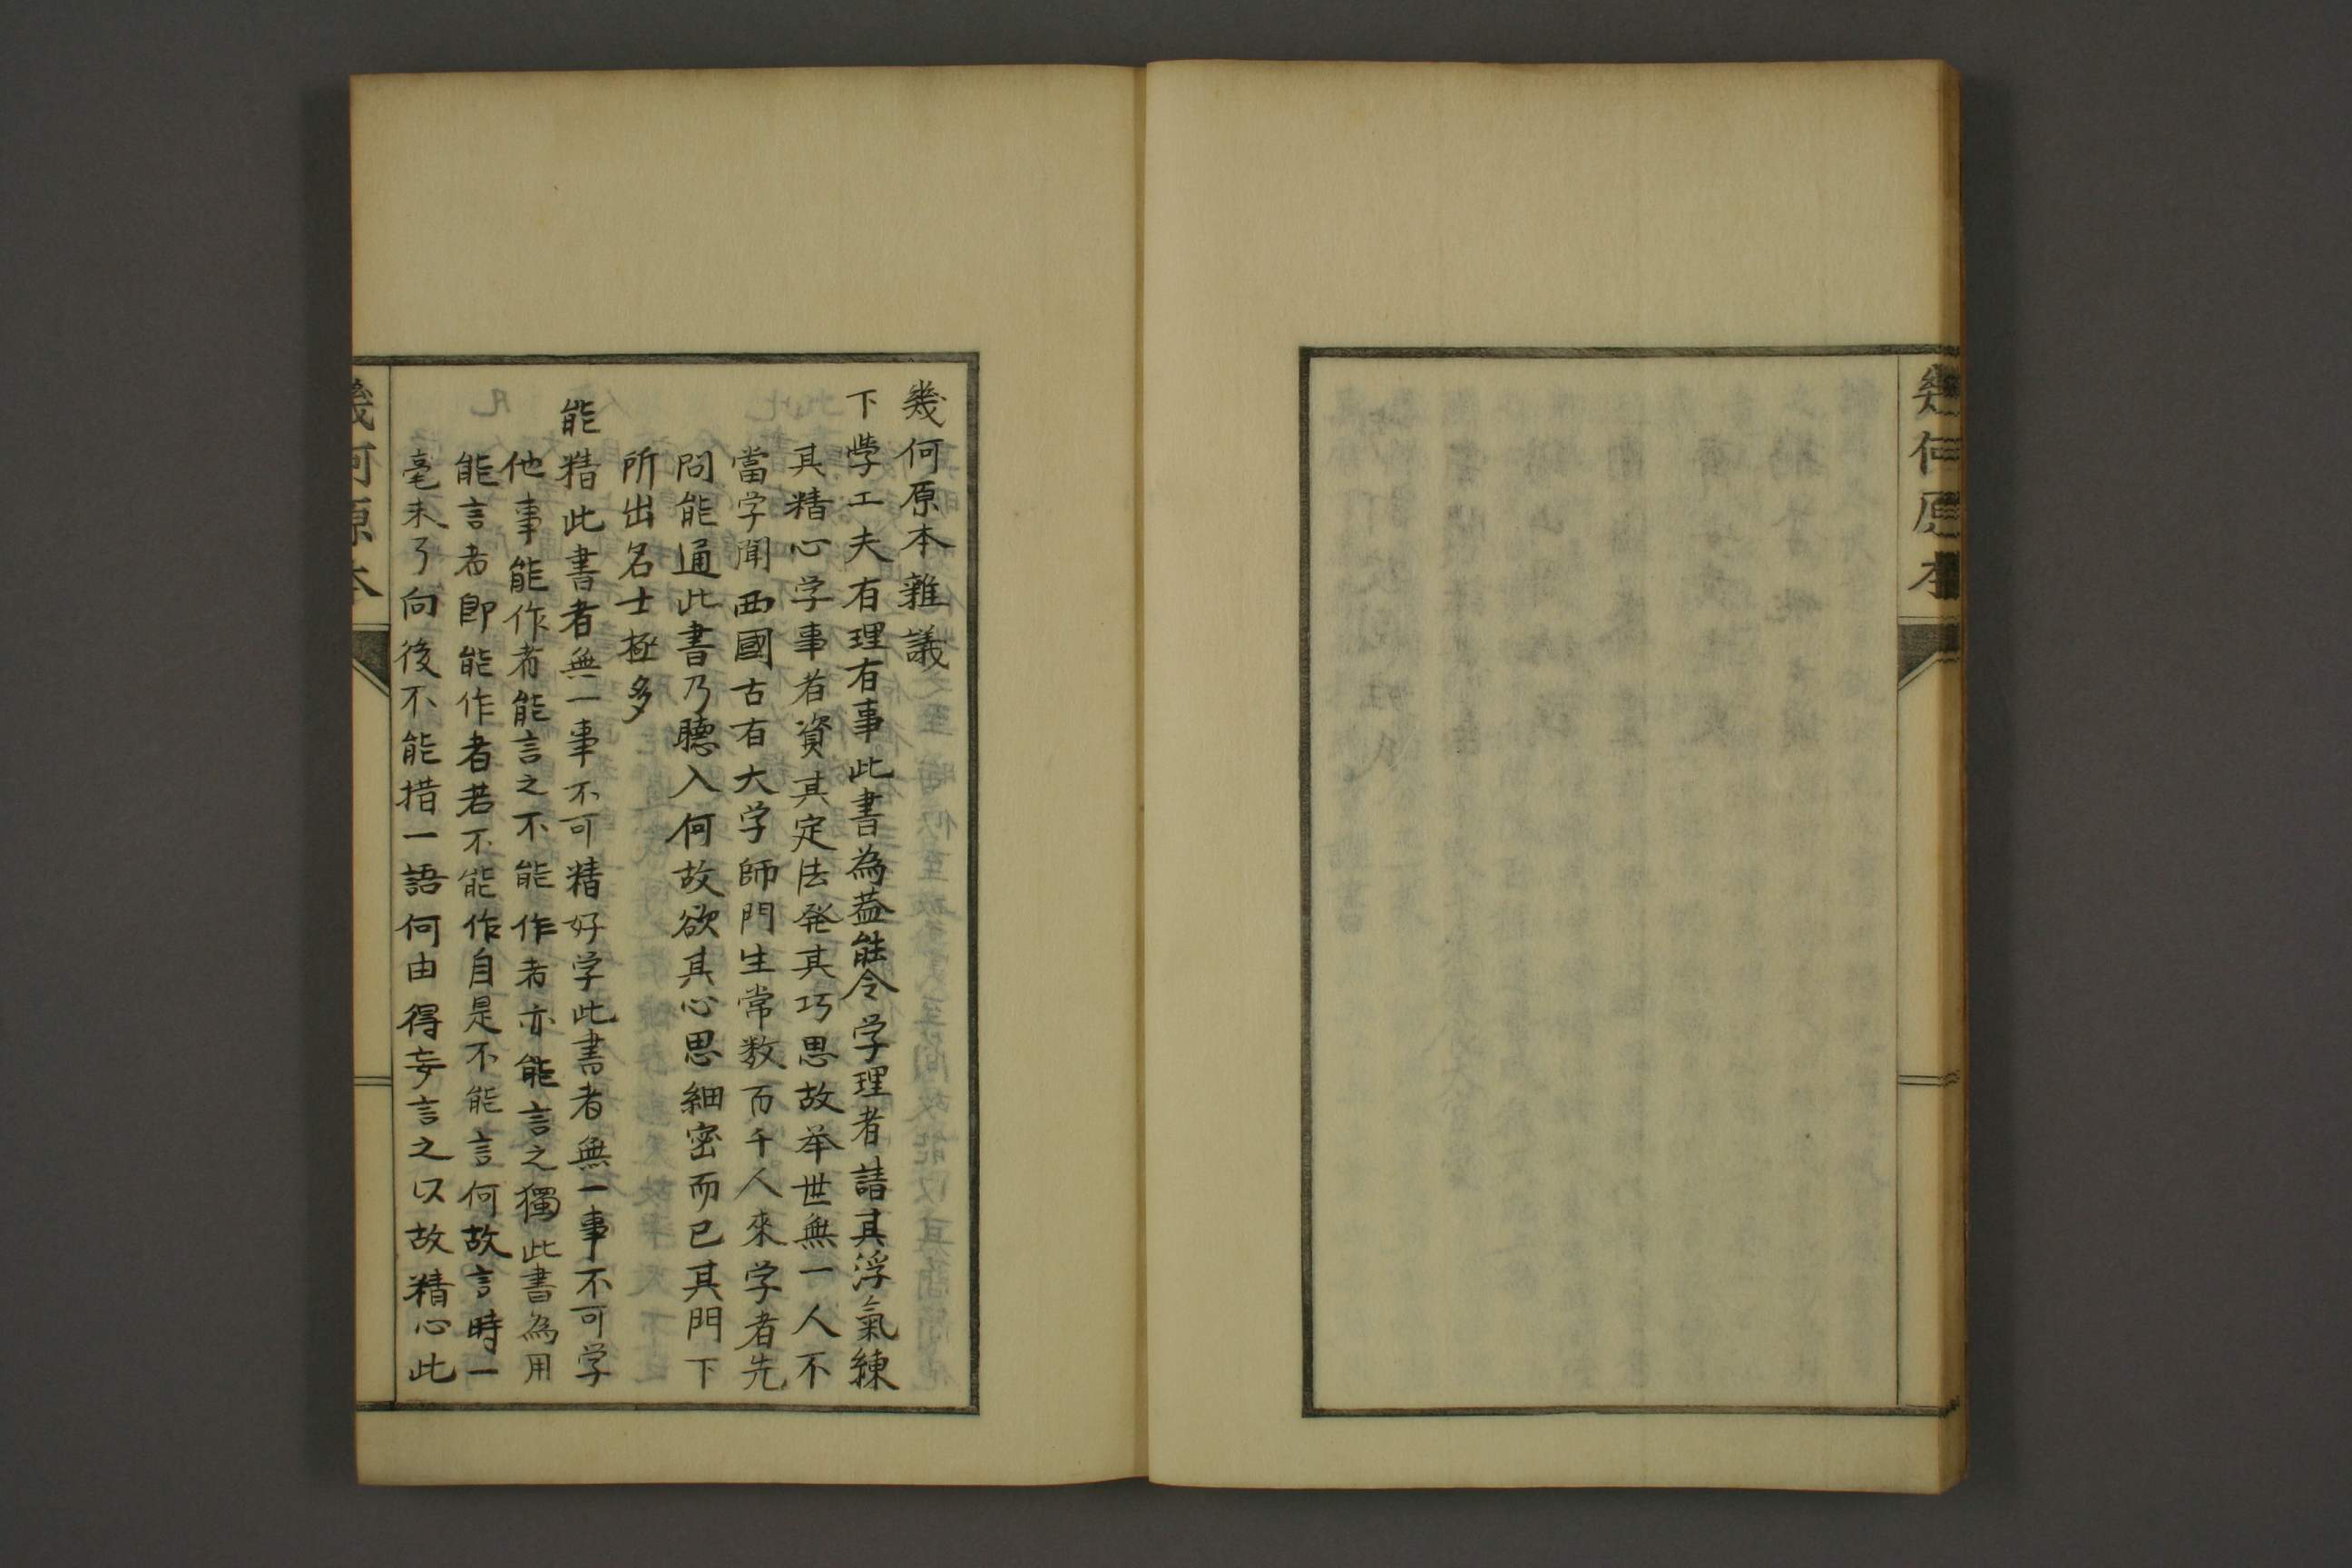 幾何原本
幾何原本雜議
下学工夫有理有事此書為益能令学理者請其浮氣練
其精心学事者資其定法発其巧思故举世無一人不
當学聞西國古有大学師門生常数百千人來学者先
問能通此書乃聴入何故欲其心思細密而已其門下
所出名士極多
能精此書者無一事不可精好学此書者無一事不可学
他事能作者能言之不能作者亦能言之獨此書為用
能言者即能作者若不能作自是不能言何故言時一
毫未了向後不能措一語何由得妄言之以故精心此
幾何原本